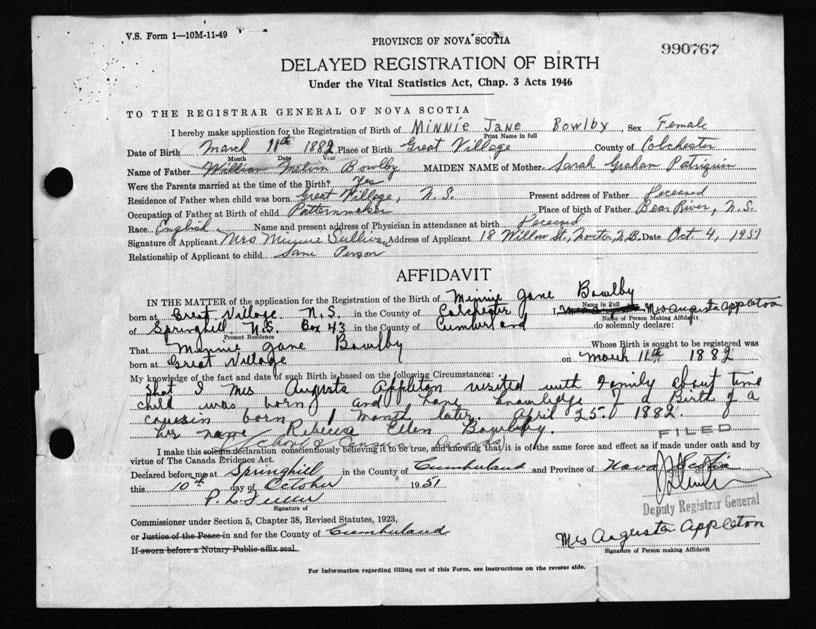 V.S. Form 1—10M-11-49
PROVINCE OF NOVA SCOTIA
990767
DELAYED REGISTRATION OF BIRTH
Under the Vital Statistics Act, Chap. 3 Acts 1946
TO THE REGISTRAR GENERAL OF NOVA SCOTIA
I hereby make application for the Registration of Birth of Minnie Jane Bowlby, Sex Female
Print Name in full
Date of Birth March 11th 1882, Place of Birth Great Village County of Colchester
Month Date Year
Name of Father William Melvin Bowlby MAIDEN NAME of Mother Sarah Graham Patriquin
Were the Parents married at the time of the Birth? Yes
Residence of Father when child was born Great Village, N.S. Present address of Father Deceased
Occupation of Father at Birth of child Patternmaker Place of birth of Father Bear River, N.S.
Race English Name and present address of Physician in attendance at birth Deceased
Signature of Applicant Mrs Sullivan Address of Applicant 18 Willow St., N.B. Date Oct 4, 1951
Relationship of Applicant to child Same Person
AFFIDAVIT
IN THE MATTER of the application for the Registration of the Birth of Minnie Jane Bowlby
Name in Full
born at Great Village N.S. in the County of Colchester I, Mrs Augusta Appleton
Name of Person Making Affidavit
of Springhill N.S. Box 43 in the County of Cumberland do solemnly declare:
Present Residence
That Minnie Jane Bowlby Whose Birth is sought to be registered was
born at Great Village on March 11th 1882
My knowledge of the fact and date of such Birth is based on the following Circumstances:
That I Mrs Augusta Appleton visited with Family about time
child was born and have knowledge of a Birth of a
cousin born 1 month later. April 25 1882.
her name Rebecca Ellen Bowlby.
FILED
School & Census Records
I make this solemn declaration conscientiously believing it to be true, and knowing that it is of the same force and effect as if made under oath and by
virtue of The Canada Evidence Act.
Declared before me at Springhill in the County of Cumberland and Province of Nova Scotia
this 10th day of October 1951
Signature of
Deputy Registrar General
Commissioner under Section 5, Chapter 38, Revised Statutes, 1923,
or Justice of the Peace in and for the County of Cumberland
Mrs Augusta Appleton
If sworn before a Notary Public affix seal.
Signature of Person making Affidavit
For Information regarding filling out of this Form, see instructions on the reverse side.